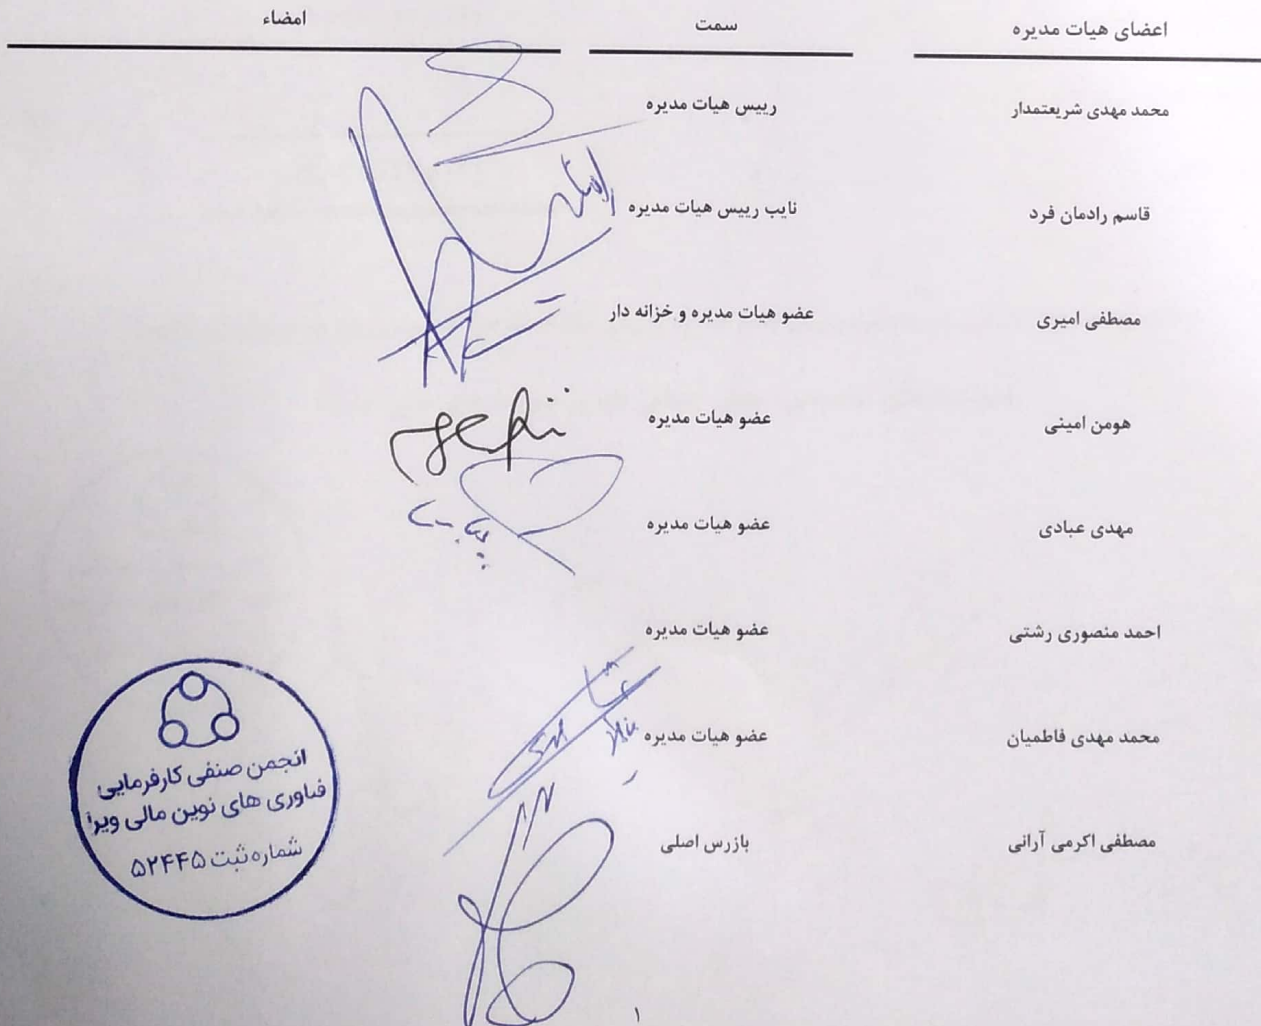 اعضای هیات مدیره سمت امضاء
محمد مهدی شریعتمدار رییس هیات مدیره
قاسم رادمان فرد نایب رییس هیات مدیره
مصطفی امیری عضو هیات مدیره و خزانه دار
هومن امینی عضو هیات مدیره
مهدی عبادی عضو هیات مدیره
احمد منصوری رشتی عضو هیات مدیره
محمد مهدی فاطمیان عضو هیات مدیره
مصطفی اکرمی آرانی بازرس اصلی
انجمن صنفی کارفرمایی
فناوری های نوین مالی ویرا
شماره ثبت ۵۲۴۴۵
۱